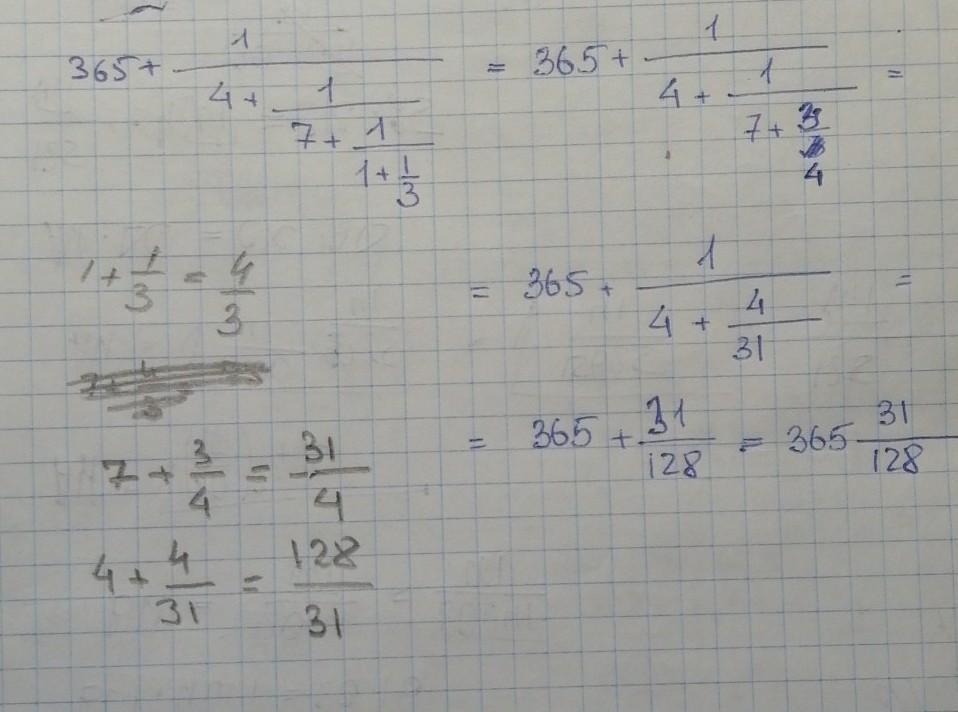 365 + 1/(4 + 1/(7 + 1/(1 + 1/3))) = 365 + 1/(4 + 1/(7 + 3/4)) =
1 + 1/3 = 4/3
= 365 + 1/(4 + 4/31) =
7 + 3/4 = 31/4
= 365 + 31/128 = 365 31/128
4 + 4/31 = 128/31